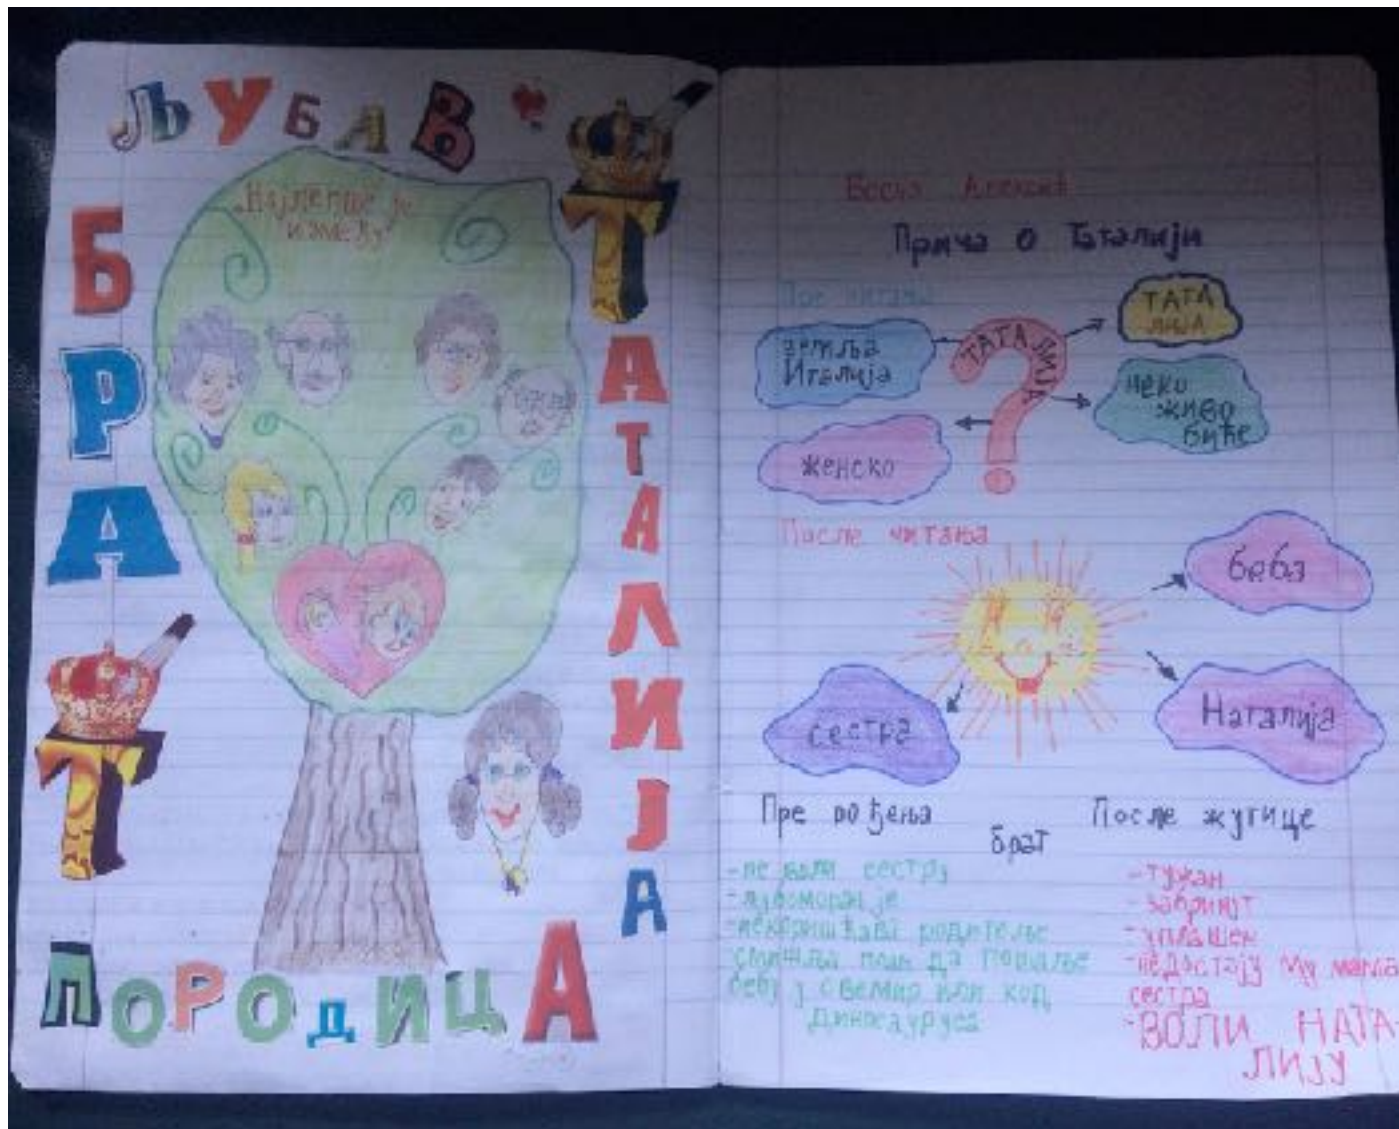 ЉУБАВ
БРАТ
ТАТАЛИЈА
„Најлепше је
између“
ПОРОДИЦА
Весна Алексић
Прича о Таталији
Пре читања
земља
Италија
ТАТАЛИЈА
ТАТА
ЛИЈА
неко
живо
биће
женско
После читања
беба
сестра
Наталија
Пре рођења
брат
После жутице
-не воли сестру
-љубоморан је
родитеље
-смишља план да пошаље
бебу у свемир или код
диносауруса
-тужан
-забринут
-уплашен
-недостају му мама
сестра
-ВОЛИ НАТА-
ЛИЈУ